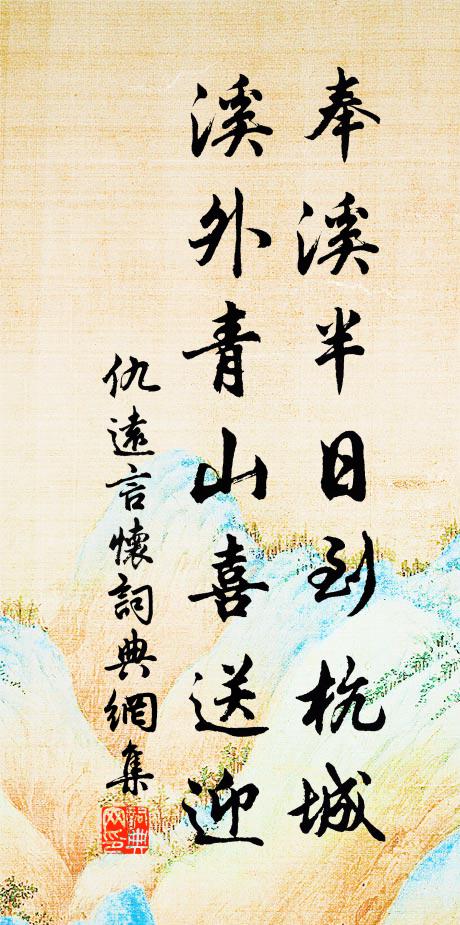 奉溪半日到杭城
溪外青山喜送迎
仇遠言懷詞典網集